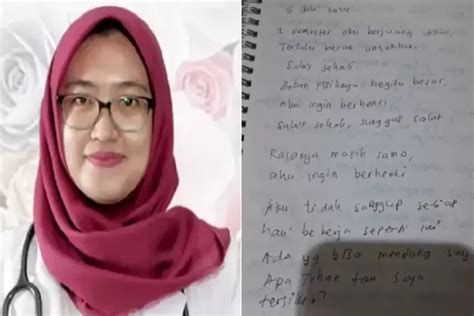 1 semester aku berjuang
Terlalu berat untukku.
Sakit sekali.
Beban fisiknya begitu besar.
Aku ingin berhenti
Sakit sekali, sunggu sakit.
Rasanya masih sama,
aku ingin berhenti
Aku tidak sanggup setiap
hari bekerja seperti ini.
Ada yg bisa menolong saya
Apa Tuhan tau saya
tersiksa?